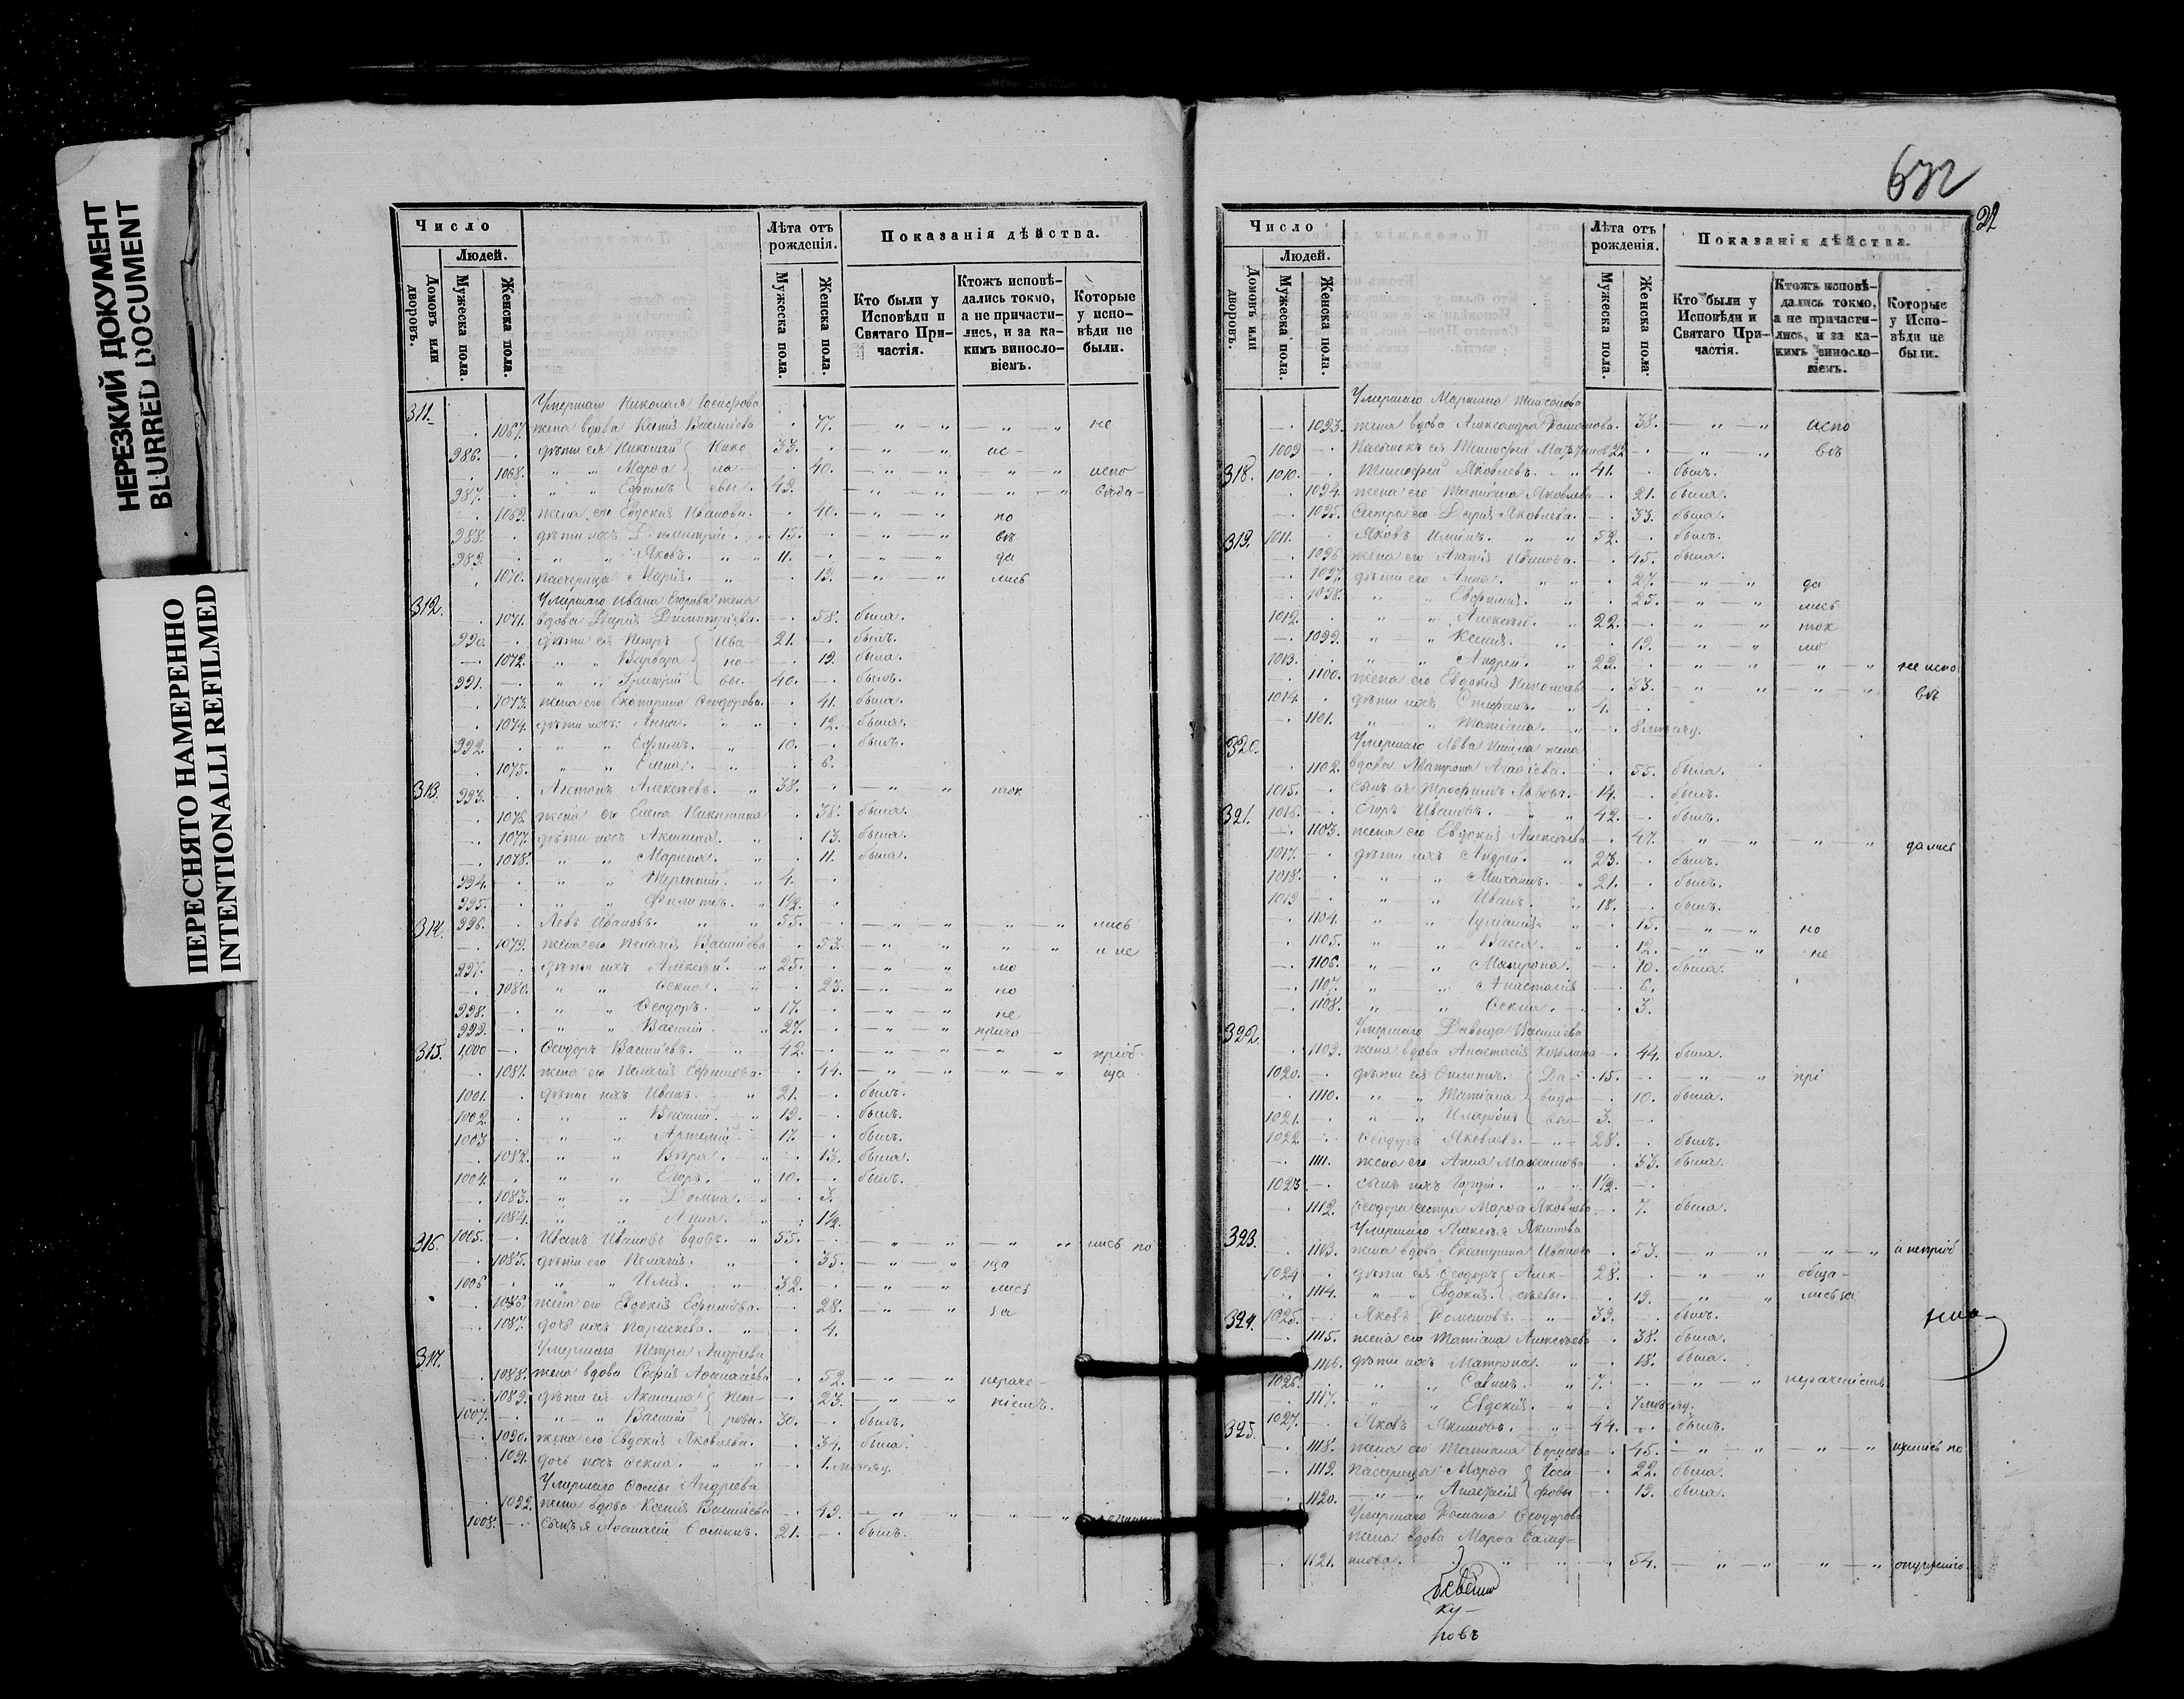 НЕРЕЗКИЙ ДОКУМЕНТ
BLURRED DOCUMENT
ПЕРЕСНЯТО НАМЕРЕННО
INTENTIONALLI REFILMED
Число
Людей.
Домовъ или дворовъ.
Мужеска пола.
Женска пола.
Лѣта отъ рожденія.
Мужеска пола.
Женска пола.
Показанія дѣйства.
Кто были у Исповѣди и Святаго Причастія.
Ктожъ исповѣ-
дались токмо,
а не причасти-
лись, и за ка-
кимъ виносло-
віемъ.
Которые
у испо-
вѣди не
были.
311. Умершаго Николая Іосифова
1067. жена вдова Ксенія Васильева 77. не
986. дѣти ея Николай Нико 33. ис-
1068. Марѳа ла 40. испо
987. Ефимъ евы. 42.
1069. жена его Евдокія Иванова. 40. по
988. дѣти ихъ Димитрій. 15. вѣ
989. Яковъ. 11. да
1070. падчерица Марія. 19. лись
312. Умершаго Ивана Егорова жена
1071. вдова Дарія Димитріева. 58. была.
990. дѣти ея Петръ Ива 21. былъ.
1072. Варвара но 19. была.
991. Григорій вы. 40. былъ.
1073. жена его Екатерина Ѳеодорова. 41. была.
1074. дѣти ихъ: Анна. 12. была.
992. Ефимъ. 10. былъ.
1075. Елена. 6.
313. 993. Антонъ Алексѣевъ. 38. ток
1076. жена его Елена Никитина 38. была.
1077. дѣти ихъ Акилина. 13. была.
1078. Марина. 11. была.
994. Терентій. 4.
995. Филиппъ. 1½.
314. 996. Левъ Ивановъ. 55. лись
1079. жена его Пелагія Васильева 53. и не
997. дѣти ихъ Алексѣй. 25. мо
1080. Ѳекла. 23. но
998. Ѳеодоръ. 17. не
999. Василій. 27. прича
315. 1000 Ѳеодоръ Васильевъ. 42. пріоб
1081. жена его Пелагія Ефимова. 44. ща
1001. дѣти ихъ Иванъ. 21. былъ.
1002. Василій. 19. былъ.
1003 Артемій. 17. былъ.
1082. Вѣра. 13. была.
1004. Егоръ. 10. былъ.
1083. Домна. 3.
1084. Анна. 1½.
316. 1005. Иванъ Ивановъ вдовъ. 55. лись по
1085. дѣти его Пелагія. 35. ща
1006 Илія. 32. лись
1086. жена его Евдокія Ефимова. 28. за
1087. дочь ихъ Параскева. 4.
317. Умершаго Петра Андреева
1088. жена вдова Софія Аѳанасіева 52. нераче
1089. дѣти ея Акилина Пет- 23. ніемъ.
1007. Василій ровы. 30. былъ.
1090. жена его Евдокія Яковлева. 34. была.
1091. дочь ихъ Ѳекла. 1. мѣсяц.
Умершаго Ѳомы Андреева
1092. жена вдова Ксенія Васильева 49.
1008. сынъ ея Аѳанасій Ѳоминъ. 21. былъ.
632
22
Число
Людей.
Домовъ или дворовъ.
Мужеска пола.
Женска пола.
Лѣта отъ рожденія.
Мужеска пола.
Женска пола.
Показанія дѣйства.
Кто были у Исповѣди и Святаго Причастія.
Ктожъ исповѣ-
дались токмо,
а не причасти-
лись, и за ка-
кимъ виносло-
віемъ.
Которые
у Испо-
вѣди не
были.
Умершаго Мартина
1093. жена вдова Александра Романова. 38. испо
1009 22 вѣ
318. 1010. Тимоѳей Яковлевъ. 41. былъ.
1094. жена его Татіана Яковлева 21. была.
1095. сестра его Дарія Яковлева. 33. была.
319. 1011. Яковъ Илиінъ. 52. былъ.
1096 жена его Агаѳія Иванова. 45. была.
1097. дѣти его Анна. 27. да
1098. Евфимія. 25. лись
1012. Алексѣй. 22. ток
1099. Ксенія. 19. мо
1013. Андрей. 22. не испо
1100. жена его Евдокія Николаева 33. вѣ
1014. дѣти ихъ Стефанъ. 4.
1101. Татіана.
320. Умершаго Льва Иліина жена
1102. вдова Матрона Агаѳіева. 55. была.
1015. сынъ ея Трофимъ Львовъ. 14. былъ.
321. 1016. Егоръ Ивановъ. 42. былъ.
1103. жена его Евдокія Алексѣева 47. дались
1017. дѣти ихъ Андрей. 23. былъ.
1018. Михаилъ. 21. былъ.
1019 Иванъ. 18. былъ.
1104. Іуліанія 15. но
1105. Васса. 12. не
1106. Матрона. 10. была.
1107. Анастасія 6.
1108. Ѳекла. 3.
322. Умершаго Давыда Васильева
1109. жена вдова Анастасія 44. была.
1020. дѣти ея Филиппъ. Да- 15. прі
1110. Татіана видо 10. была.
1021. Иларіонъ вы 3.
1022 Ѳеодоръ Яковлевъ. 28. былъ.
1111. жена его Анна Максимова 33. была.
1023 сынъ ихъ 1½.
1112. Ѳеодора сестра Марѳа Яковлева 7. была.
323. Умершаго Алексѣя Якимова
1113. жена вдова Екатерина Иванова 53. и непріоб
1024 дѣти ея Ѳеодоръ Алек- 28. обща-
1114. Евдокія. сѣевы. 19. лись за
324. 1025. Яковъ Романовъ. 39. былъ.
1115. жена его Татіана Алексѣева 38. была.
1116. дѣти ихъ Матрона. 18. была.
1026. Савелъ. 7.
1117. Евдокія. 7 мѣсяц.
325. 1027. Яковъ Якимовъ. 44. былъ.
1118. жена его Татіана Борисова 45.
1119. падчерицы Марѳа Іоси 22. была.
1120. Анастасія фовы 19. была.
Умершаго Романа Ѳеодорова
жена вдова Марѳа Саму-
1121. илова. 54.
ку-
ровъ